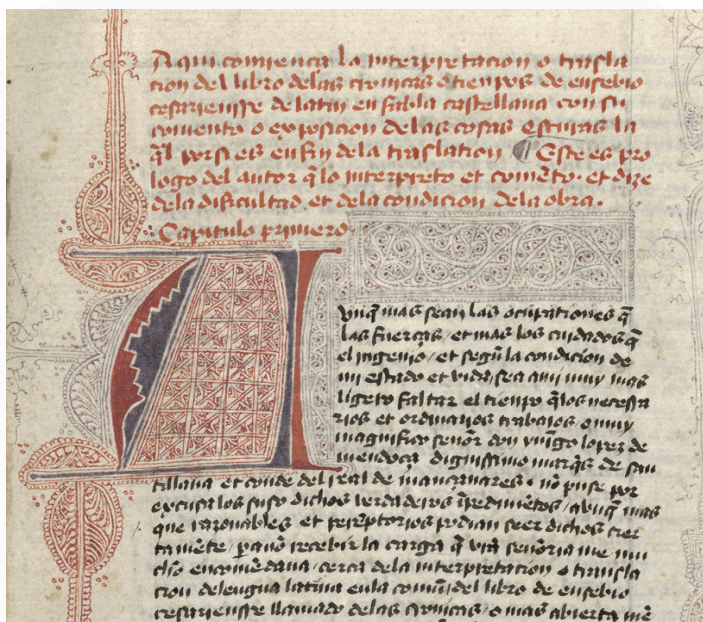 Aqui comiença la interpretacion o trasla
cion del libro delas cronicas o tienpos de eusebio
cesariensse de latin en fabla castellana con su
comento o exposicion delas cosas escuras la
q̃l porsi es enfin dela traslation ¶ Este es pro
logo del autor q̃ lo interpreto et comẽto. et dize
dela dificultad. et dela condicion dela obra.
Capitulo primero.
Avnq̃ mas sean las ocupationes q̃
las fuerças / et mas los cuidados q̃
el ingenio / et segũ la condicion de
mi estado et vida / sea ami muy mas
ligero faltar el tienpo q̃ los necessa
rios et ordinarios trabajos. o muy
magnifico señor don yñigo lopez de
mendoça dignissimo marq̃s de san
tillana et conde del real de mançanares. nõ puse por
excusa los suso dichos verdaderos ĩpedimẽtos / avnq̃ mas
que razonables et perẽptorios podian seer dichos cier
tamẽte / recebir la carga q̃ vr̃a señoria me mu
cho encomẽdaua / cerca dela interpretacion o transla
cion delengua latina enla comũ / del libro de eusebio
cesariensse llamado delas cronicas / o mas abierta mẽ